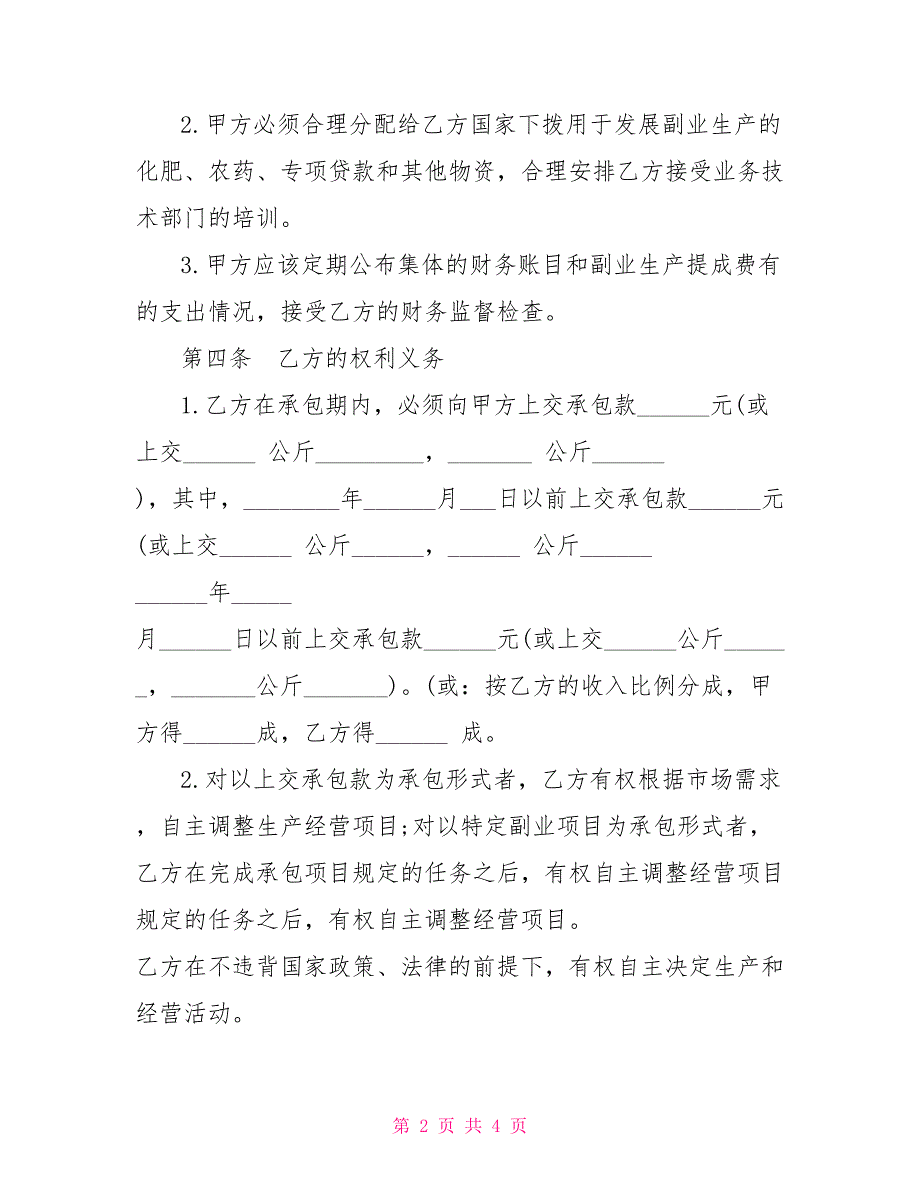 2.甲方必须合理分配给乙方国家下拨用于发展副业生产的
化肥、农药、专项贷款和其他物资，合理安排乙方接受业务技
术部门的培训。
3.甲方应该定期公布集体的财务账目和副业生产提成费有
的支出情况，接受乙方的财务监督检查。
第四条　乙方的权利义务
1.乙方在承包期内，必须向甲方上交承包款______元(或
上交______ 公斤_________，_______ 公斤______
)，其中，________年______月___日以前上交承包款______元
(或上交______ 公斤______，______ 公斤______
______年_____
月______日以前上交承包款______元(或上交______公斤_____
_，_______公斤_______)。(或：按乙方的收入比例分成，甲
方得______成，乙方得______ 成。
2.对以上交承包款为承包形式者，乙方有权根据市场需求
，自主调整生产经营项目;对以特定副业项目为承包形式者，
乙方在完成承包项目规定的任务之后，有权自主调整经营项目
规定的任务之后，有权自主调整经营项目。
乙方在不违背国家政策、法律的前提下，有权自主决定生产和
经营活动。
第 2 页 共 4 页